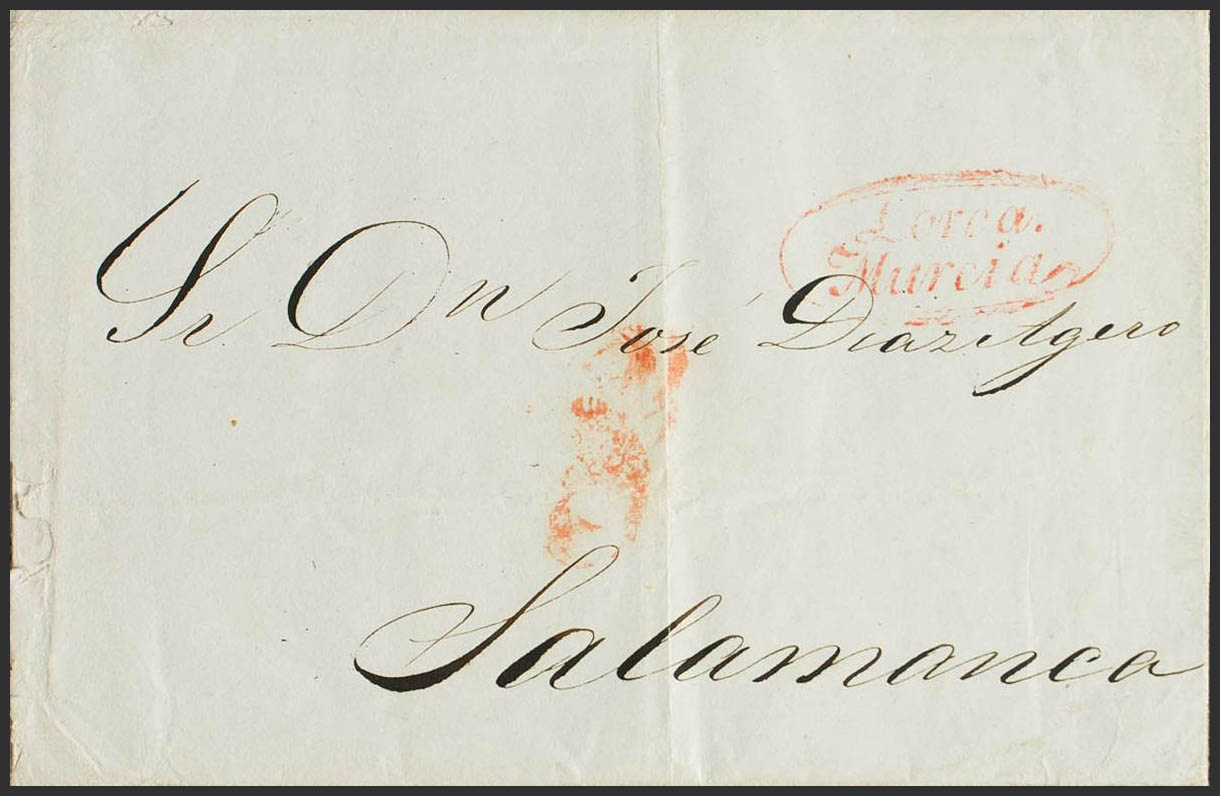 Lorca.
Murcia
Sr. Dn José Diaz Agero
Salamanca